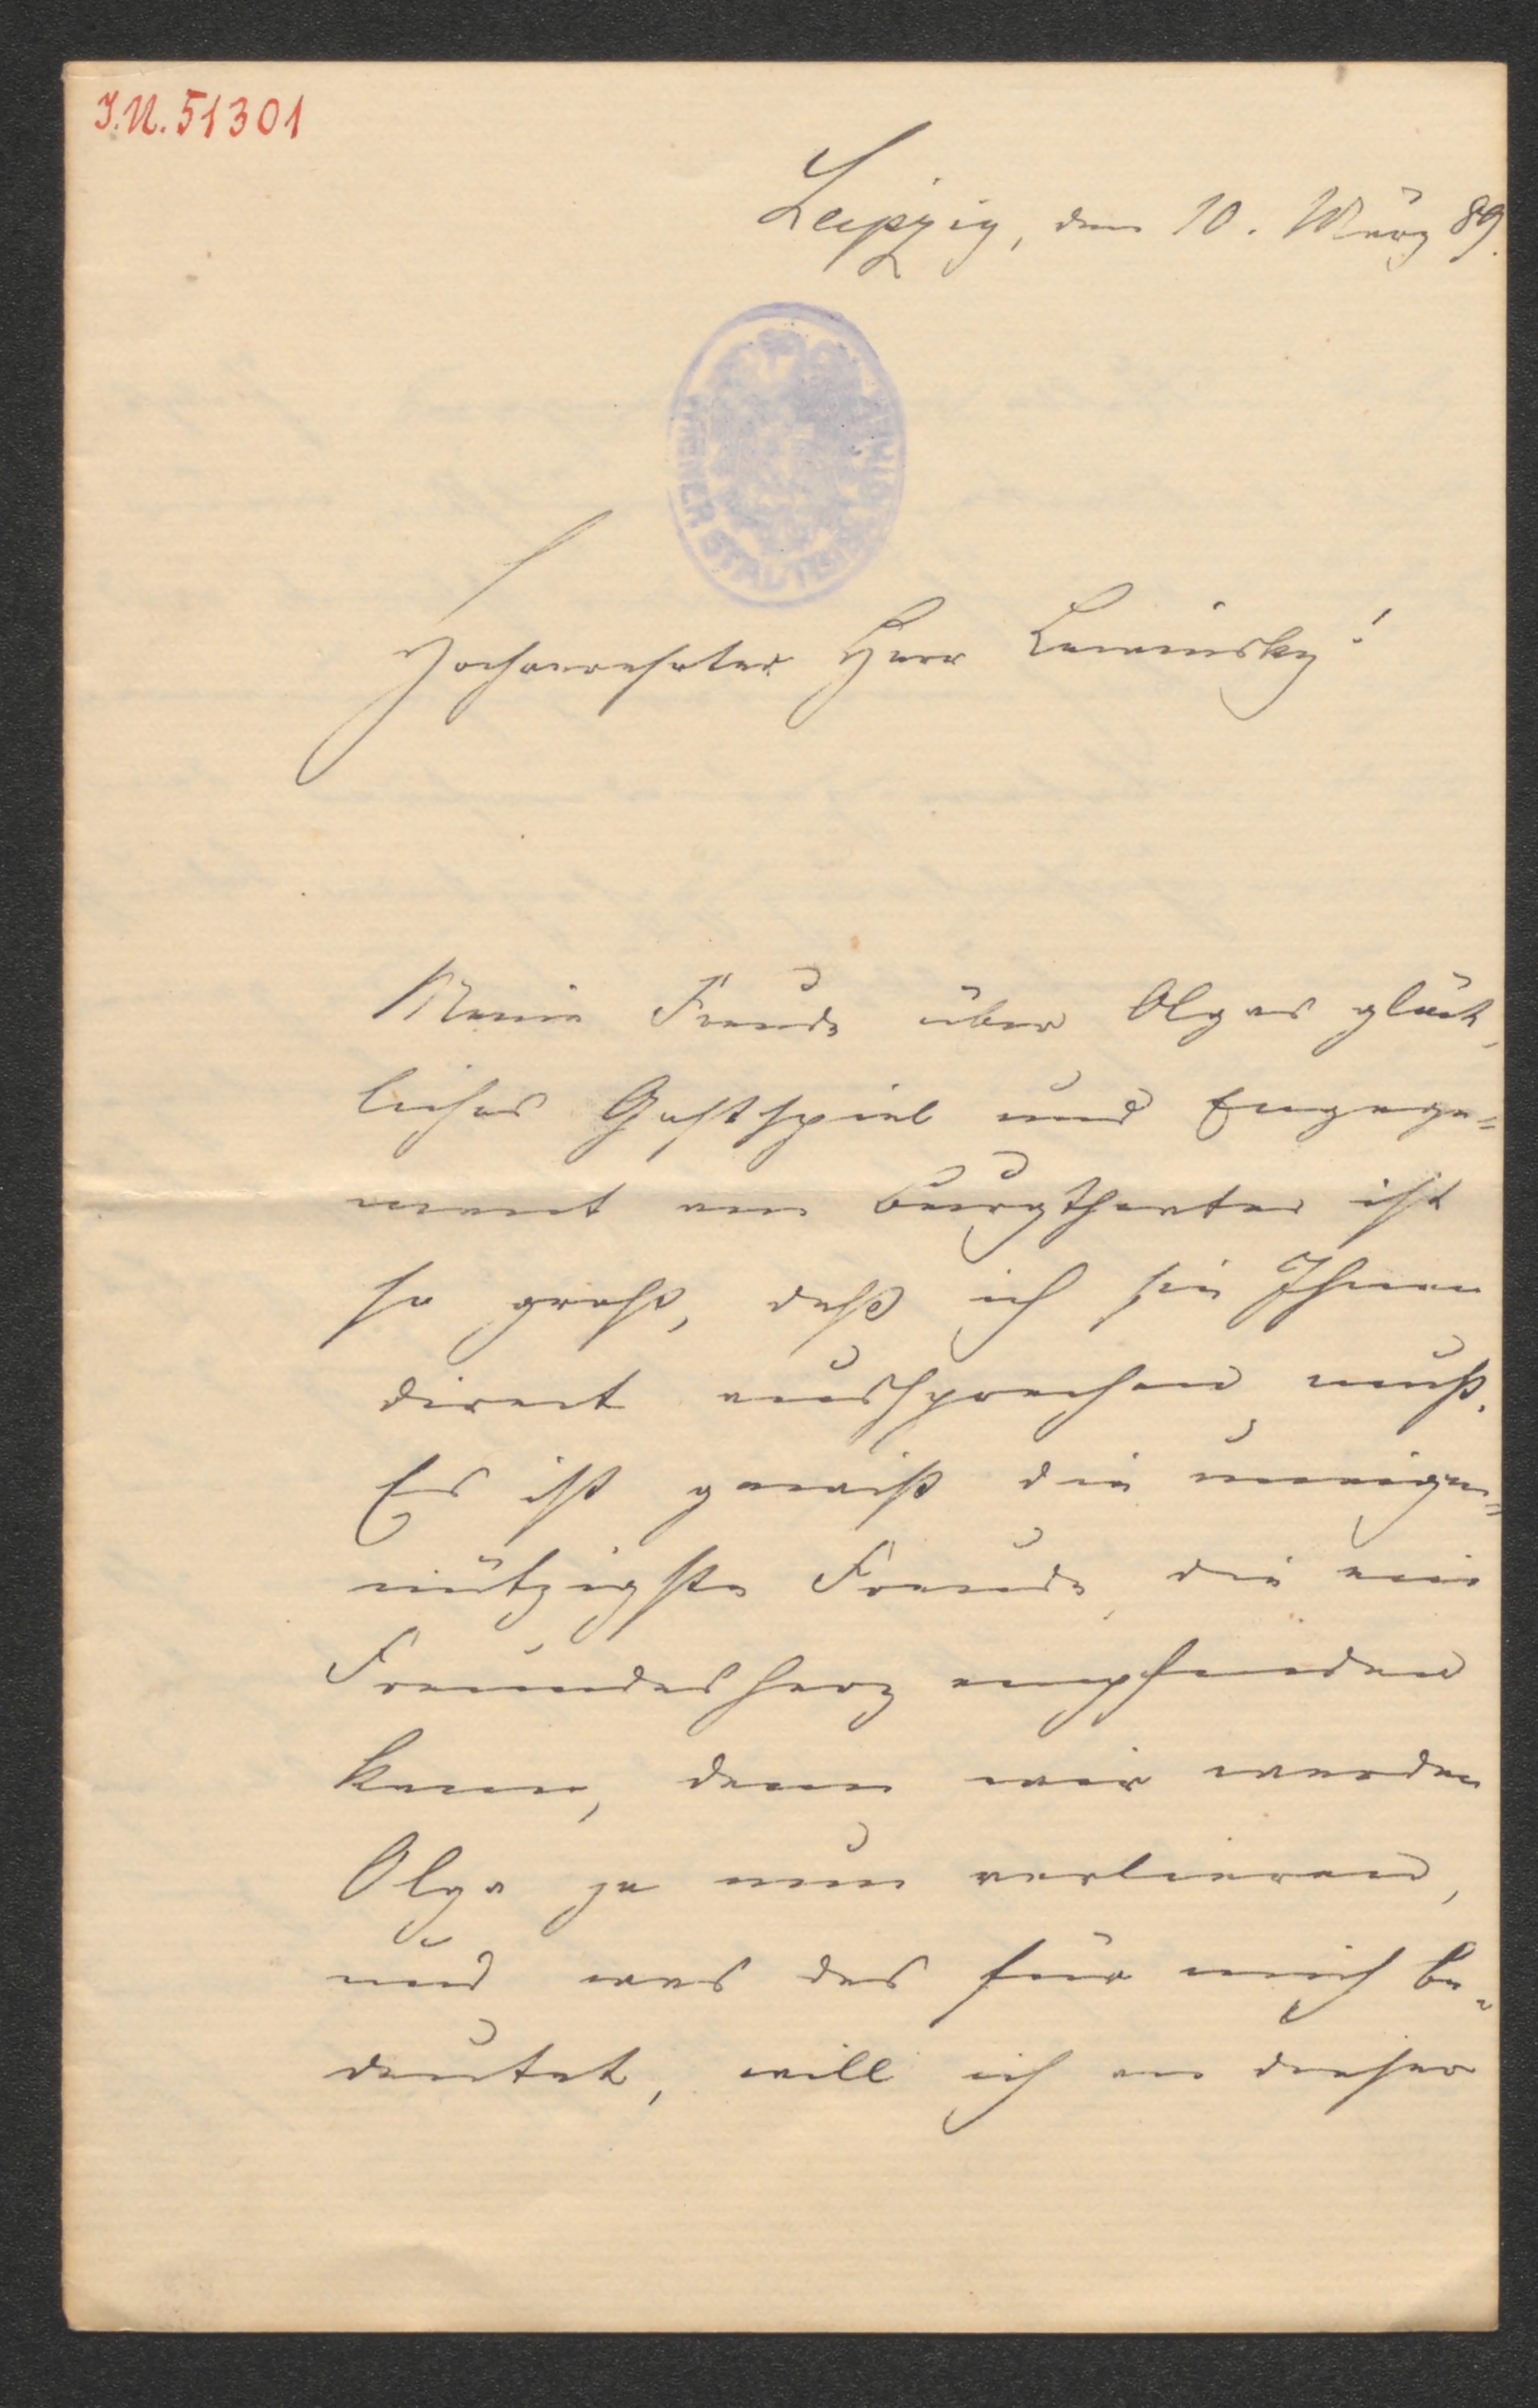 I.N. 51301
Leipzig, den 10. März 89.
WIENER STADTBIBLIOTHEK
Hochverehrter Herr Lewinsky!
Meine Freude über Olgas glück-
liches Gastspiel und Engage=
ment am Burgtheater ist
so groß, daß ich sie Ihnen
direct aussprechen muß.
Es ist gewiß die uneigen=
nützigste Freude, die ein
Freundesherz empfinden
kann, denn wir werden
Olga ja nun verlieren,
und was das für mich be=
deutet, will ich an dieser